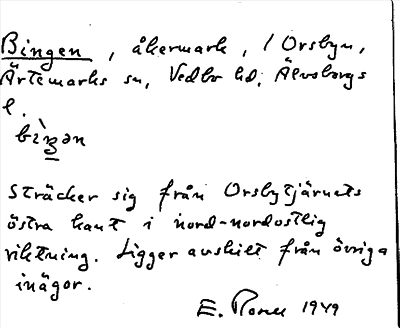 Bingen, åkermark, i Orsbyn,
Ärtemarks sn, Vedbo hd, Älvsborgs
l.
sträcker sig från Orsbytjärnets
östra kant i nord-nordostlig
riktning. Ligger avskilt från övriga
inägor.
E. 1949